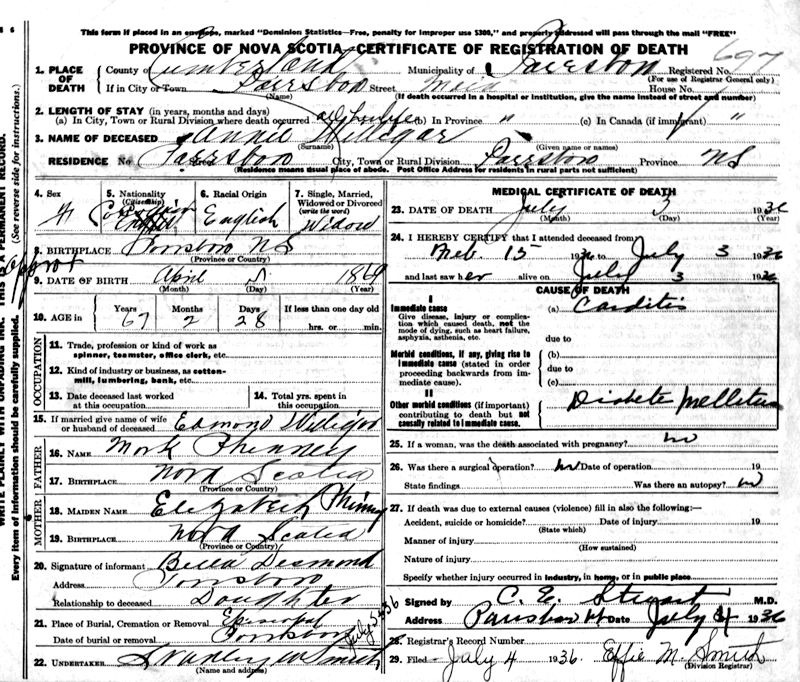 This form if placed in an envelope, marked "Dominion Statistics—Free, penalty for improper use $300," and properly addressed will pass through the mail "FREE"
PROVINCE OF NOVA SCOTIA—CERTIFICATE OF REGISTRATION OF DEATH
697
WRITE PLAINLY WITH UNFADING INK. THIS IS A PERMANENT RECORD.
Every item of information should be carefully supplied. (See reverse side for instructions.)
1. PLACE OF DEATH
County of Cumberland Municipality of Parrsboro Registered No.
(For use of Registrar General only)
If in City or Town Parrsboro Street Main House No.
(Name) (If death occurred in a hospital or institution, give the name instead of street and number)
2. LENGTH OF STAY (in years, months and days)
(a) In City, Town or Rural Division where death occurred all her life (b) In Province " (c) In Canada (if immigrant) "
3. NAME OF DECEASED Annie Willigar
(Surname) (Given name or names)
RESIDENCE No. Parrsboro City, Town or Rural Division Parrsboro Province NS
(Residence means usual place of abode. Post Office Address for residents in rural parts not sufficient)
4. Sex F
5. Nationality (Citizenship) Canadian
6. Racial Origin English
7. Single, Married, Widowed or Divorced (write the word) Widow
8. BIRTHPLACE Parrsboro NS
(Province or Country)
approx
9. DATE OF BIRTH April 5 1869
(Month) (Day) (Year)
10. AGE in Years Months Days If less than one day old
67 2 28 hrs. or min.
OCCUPATION
11. Trade, profession or kind of work as spinner, teamster, office clerk, etc.
12. Kind of industry or business, as cotton-mill, lumbering, bank, etc.
13. Date deceased last worked at this occupation
14. Total yrs. spent in this occupation
15. If married give name of wife or husband of deceased Edmond Willigar
FATHER
16. NAME Mark Phinney
17. BIRTHPLACE Nova Scotia
(Province or Country)
MOTHER
18. MAIDEN NAME Elizabeth Phinney
19. BIRTHPLACE Nova Scotia
(Province or Country)
20. Signature of informant Bella Desmond
Address Parrsboro
Relationship to deceased Daughter
21. Place of Burial, Cremation or Removal Episcopal
Date of burial or removal Parrsboro July 5 1936
22. UNDERTAKER Smith
(Name and address)
MEDICAL CERTIFICATE OF DEATH
23. DATE OF DEATH July 3 1936
(Month) (Day) (Year)
24. I HEREBY CERTIFY that I attended deceased from
Feb. 15 1936 to July 3 1936
and last saw her alive on July 3 1936
CAUSE OF DEATH
I
Immediate cause (a) Carditis
Give disease, injury or complication which caused death, not the mode of dying, such as heart failure, asphyxia, asthenia, etc.
due to
Morbid conditions, if any, giving rise to immediate cause (stated in order proceeding backwards from immediate cause).
(b)
due to
(c)
II
Other morbid conditions (if important) contributing to death but not causally related to immediate cause.
Diabetes Mellitus
25. If a woman, was the death associated with pregnancy? no
26. Was there a surgical operation? no Date of operation 19
State findings Was there an autopsy? no
27. If death was due to external causes (violence) fill in also the following:—
Accident, suicide or homicide? Date of injury 19
(State which)
Manner of injury
(How sustained)
Nature of injury
Specify whether injury occurred in industry, in home, or in public place
Signed by C. E. Stuart M.D.
Address Parrsboro Date July 4 1936
28. Registrar's Record Number
29. Filed July 4 1936. Effie M. Smith
(Division Registrar)